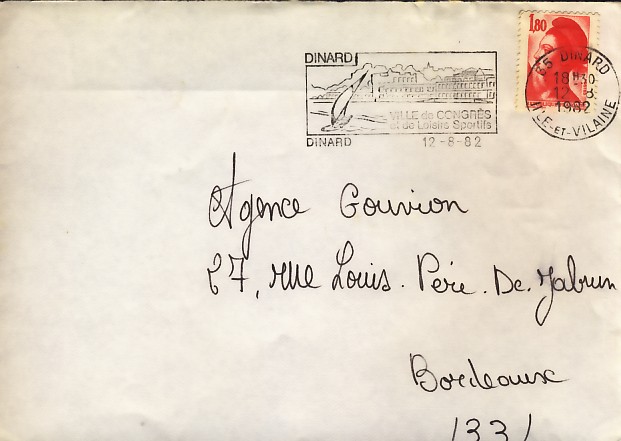 DINARD
VILLE de CONGRÈS
et de Loisirs Sportifs
DINARD 12-8-82
1,80
35 DINARD
18H30
12-8
1982
ILLE-ET-VILAINE
Agence Gouvion
27, rue Louis. Père. De. Jabrun
Bordeaux
(33)